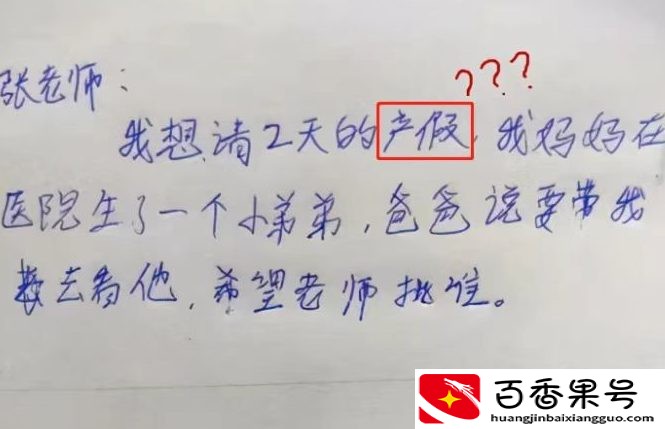 张老师：
???
我想请2天的产假，我妈妈在
医院生了一个小弟弟，爸爸说要带我
去看他，希望老师批准。
百香果号
huangjinbaixiangguo.com